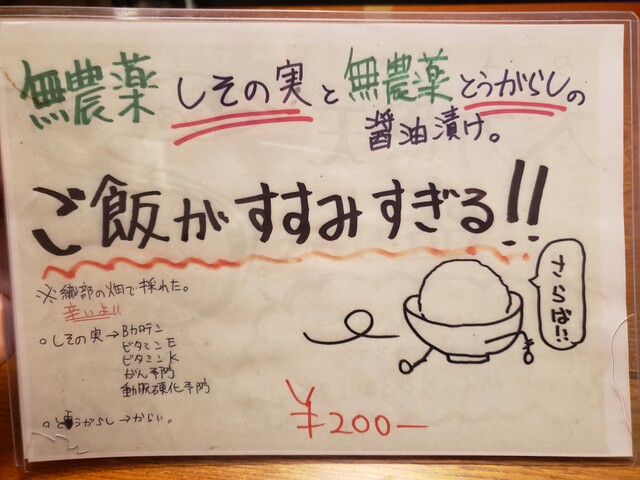 無農薬 しその実と無農薬とうがらしの
醤油漬け。
ご飯がすすみすぎる!!
さらば!!
※織部の畑で採れた。
辛いよ!!
○しその実→Bカロテン
ビタミンE
ビタミンK
がん予防
動脈硬化予防
○とうがらし→からい。
¥200-